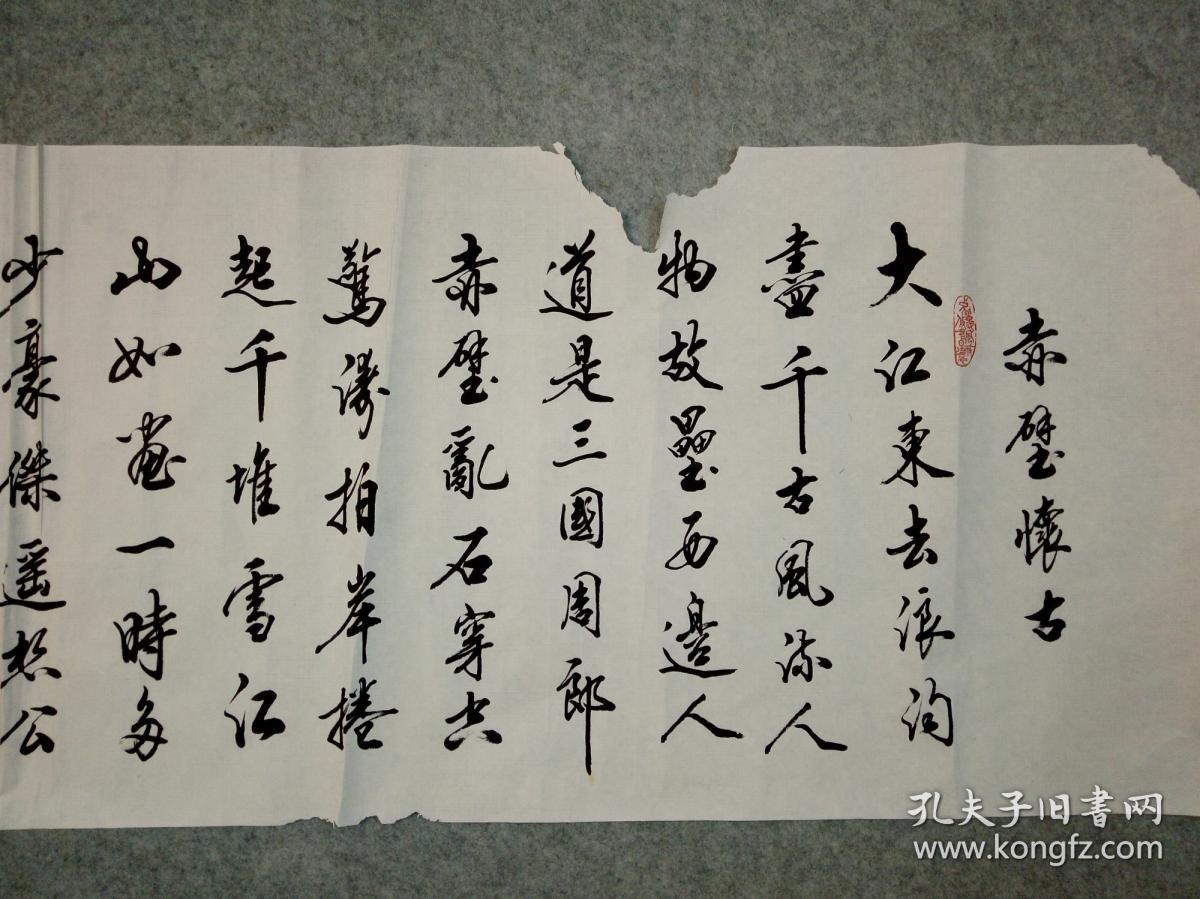 赤壁懷古
大江東去浪淘
盡千古風流人
物故壘西邊人
道是三國周郎
赤壁亂石穿空
驚濤拍岸捲
起千堆雪江
山如畫一時多
少豪傑遥想公
孔夫子旧书网
www.kongfz.com